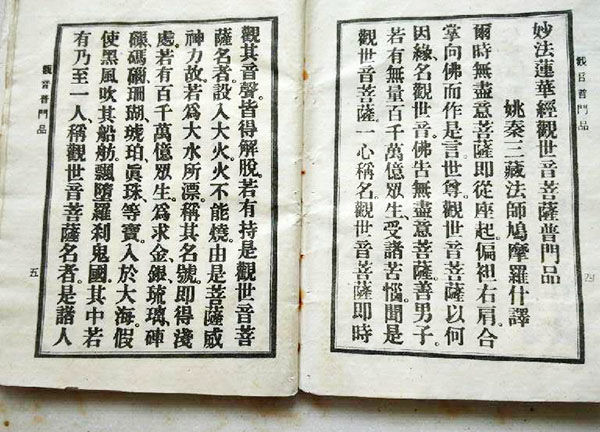 觀音普門品
四
妙法蓮華經觀世音菩薩普門品
姚秦三藏法師鳩摩羅什譯
爾時無盡意菩薩即從座起。偏袒右肩。合
掌向佛而作是言。世尊。觀世音菩薩以何
因緣名觀世音。佛告無盡意菩薩。善男子。
若有無量百千萬億眾生。受諸苦惱。聞是
觀世音菩薩。一心稱名。觀世音菩薩即時
觀其音聲。皆得解脫。若有持是觀世音菩
薩名者。設入大火。火不能燒。由是菩薩威
神力故。若爲大水所漂。稱其名號。即得淺
處。若有百千萬億眾生。爲求金銀琉璃硨
磲碼磠珊瑚琥珀眞珠等寶。入於大海。假
使黑風吹其船舫。飄墮羅刹鬼國。其中若
有乃至一人。稱觀世音菩薩名者。是諸人
觀音普門品
五